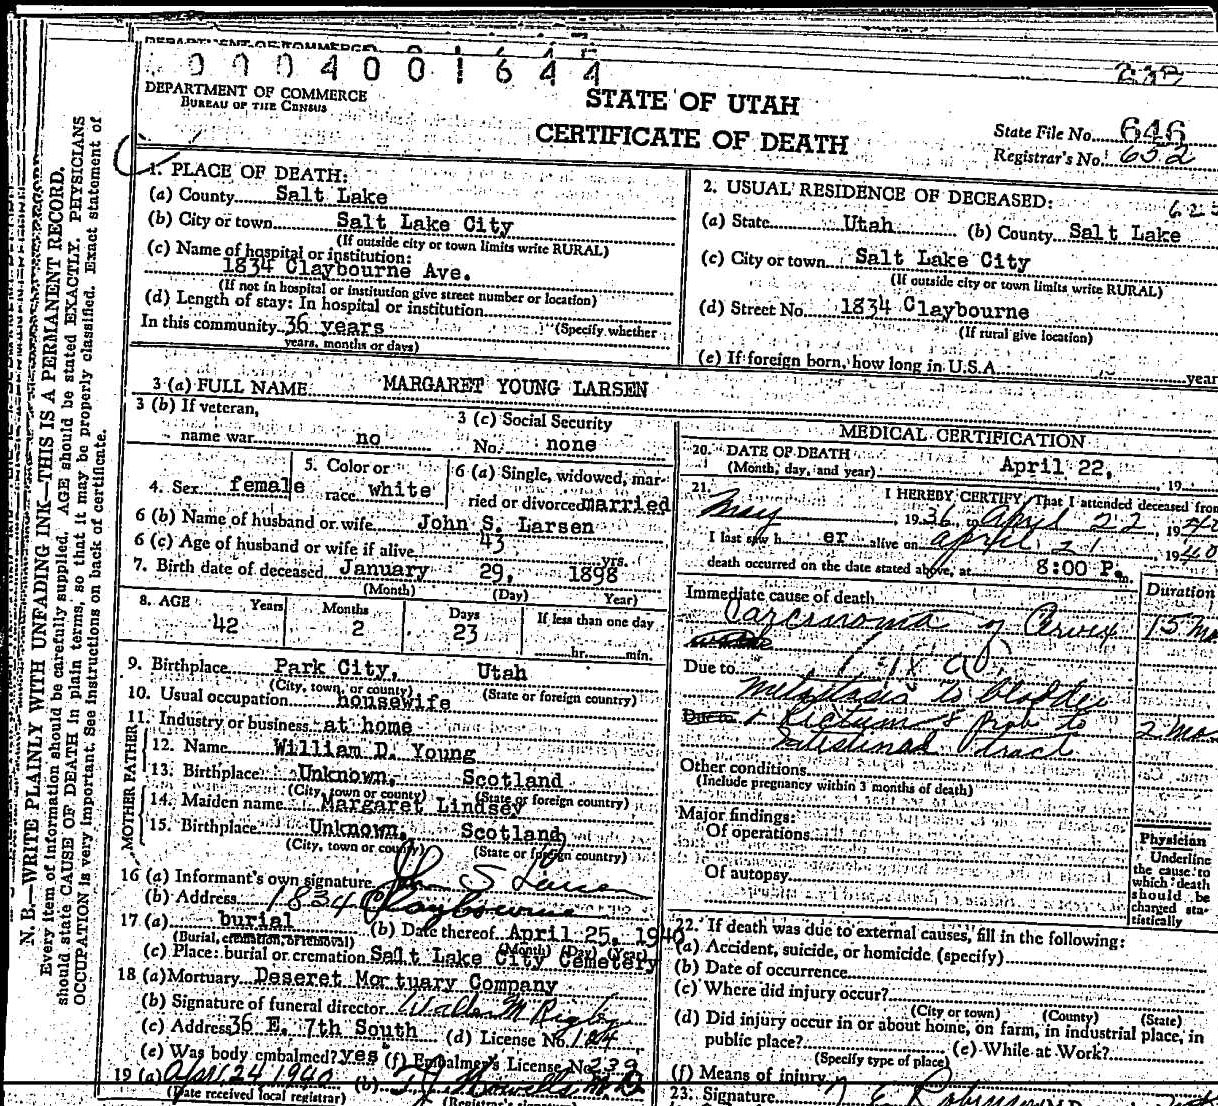 N. B.—WRITE PLAINLY WITH UNFADING INK—THIS IS A PERMANENT RECORD.
Every item of information should be carefully supplied. AGE should be stated EXACTLY. PHYSICIANS
should state CAUSE OF DEATH in plain terms, so that it may be properly classified. Exact statement of
OCCUPATION is very important. See instructions on back of certificate.
DEPARTMENT OF COMMERCE
BUREAU OF THE CENSUS
STATE OF UTAH
CERTIFICATE OF DEATH
State File No. 646
Registrar's No. 652
1. PLACE OF DEATH:
(a) County Salt Lake
(b) City or town Salt Lake City
(If outside city or town limits write RURAL)
(c) Name of hospital or institution:
1834 Claybourne Ave.
(If not in hospital or institution give street number or location)
(d) Length of stay: In hospital or institution
In this community 36 years (Specify whether
years, months or days)
2. USUAL RESIDENCE OF DECEASED:
(a) State Utah (b) County Salt Lake
(c) City or town Salt Lake City
(If outside city or town limits write RURAL)
(d) Street No. 1834 Claybourne
(If rural give location)
(e) If foreign born, how long in U.S.A. year
3 (a) FULL NAME MARGARET YOUNG LARSEN
3 (b) If veteran,
name war no
3 (c) Social Security
No. none
4. Sex female
5. Color or
race white
6 (a) Single, widowed, mar-
ried or divorced married
6 (b) Name of husband or wife John S. Larsen
6 (c) Age of husband or wife if alive 43 yrs.
7. Birth date of deceased January 29, 1898
(Month) (Day) Year)
8. AGE Years 42 Months 2 Days 23 If less than one day
hr. min.
9. Birthplace Park City, Utah
(City, town, or county) (State or foreign country)
10. Usual occupation housewife
11. Industry or business at home
FATHER
12. Name William D. Young
13. Birthplace Unknown, Scotland
(City, town or county) (State or foreign country)
MOTHER
14. Maiden name Margaret Lindsey
15. Birthplace Unknown, Scotland
(City, town or county) (State or foreign country)
16 (a) Informant's own signature John S Larsen
(b) Address 1834 Claybourne
17 (a) burial (b) Date thereof April 25, 1940
(Burial, cremation, or removal) (Month) (Day) (Year)
(c) Place: burial or cremation Salt Lake City Cemetery
18 (a) Mortuary Deseret Mortuary Company
(b) Signature of funeral director Walter M Rigby
(c) Address 36 E. 7th South (d) License No. 124
(e) Was body embalmed? yes (f) Embalmer's License No. 239
19 (a) Apr 24 1940 (b)
(Date received local registrar)
MEDICAL CERTIFICATION
20. DATE OF DEATH
(Month, day, and year) April 22, 19
21. I HEREBY CERTIFY, That I attended deceased from
May 1936, to April 22, 1940
I last saw her alive on April 21 1940
death occurred on the date stated above, at 8:00 P. m.
Immediate cause of death Duration
Carcinoma of Cervex 15 mo
Due to
Metastasis to bladder
Due to & Rectum & prob to 2 mo
intestinal tract
Other conditions
(Include pregnancy within 3 months of death)
Major findings:
Of operations
Of autopsy
Physician
Underline
the cause to
which death
should be
charged sta-
tistically
22. If death was due to external causes, fill in the following:
(a) Accident, suicide, or homicide (specify)
(b) Date of occurrence
(c) Where did injury occur?
(City or town) (County) (State)
(d) Did injury occur in or about home, on farm, in industrial place, in
public place? (e) While at Work?
(Specify type of place)
(f) Means of injury
23. Signature E Robinson M.D.